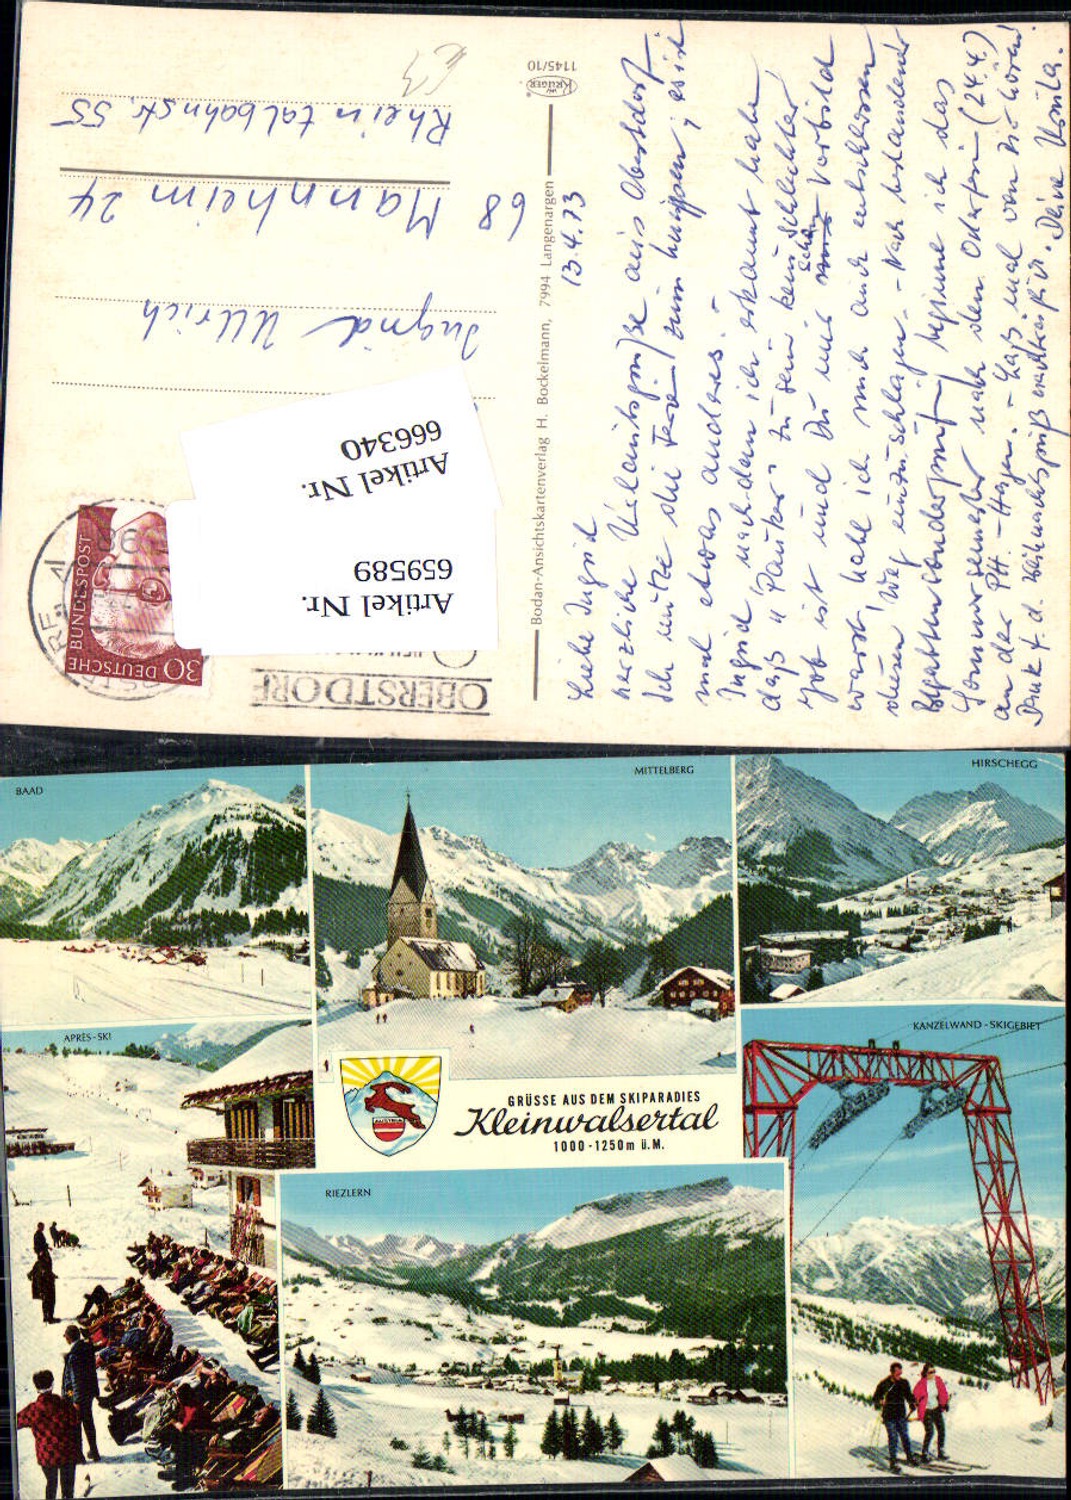 Rheintalbahnstr. 55
68 Mannheim 24
Ingrid Ullrich
Artikel Nr.
666340
Artikel Nr.
659589
30 DEUTSCHE
BUNDESPOST
OBERSTDORF
KRÜGER
1145/10
Bodan-Ansichtskartenverlag H. Bockelmann, 7994 Langenargen
13.4.73
Liebe Ingrid
herzliche Urlaubsgrüße aus Oberstdorf
Ich nutze die Ferien zum ; es ist
mal etwas anderes. -
Ingrid, nachdem ich erkannt habe
daß "Pauker" zu sein kein schlechter
Job ist und Du mir schon Vorbild
warst, habe ich mich auch entschlossen
diesen Weg einzuschlagen. - Nach bestandener
beginne ich das
Sommersemester nach den Osterferien (24.4.)
an der PH. - Hagen. - Laß mal von Dir hören!
Dank f. d. Weihnachtsgruß nachträglich. Deine Ursula.
BAAD
MITTELBERG
HIRSCHEGG
APRÈS-SKI
KANZELWAND-SKIGEBIET
AUSTRIA
GRÜSSE AUS DEM SKIPARADIES
Kleinwalsertal
1000-1250m ü.M.
RIEZLERN